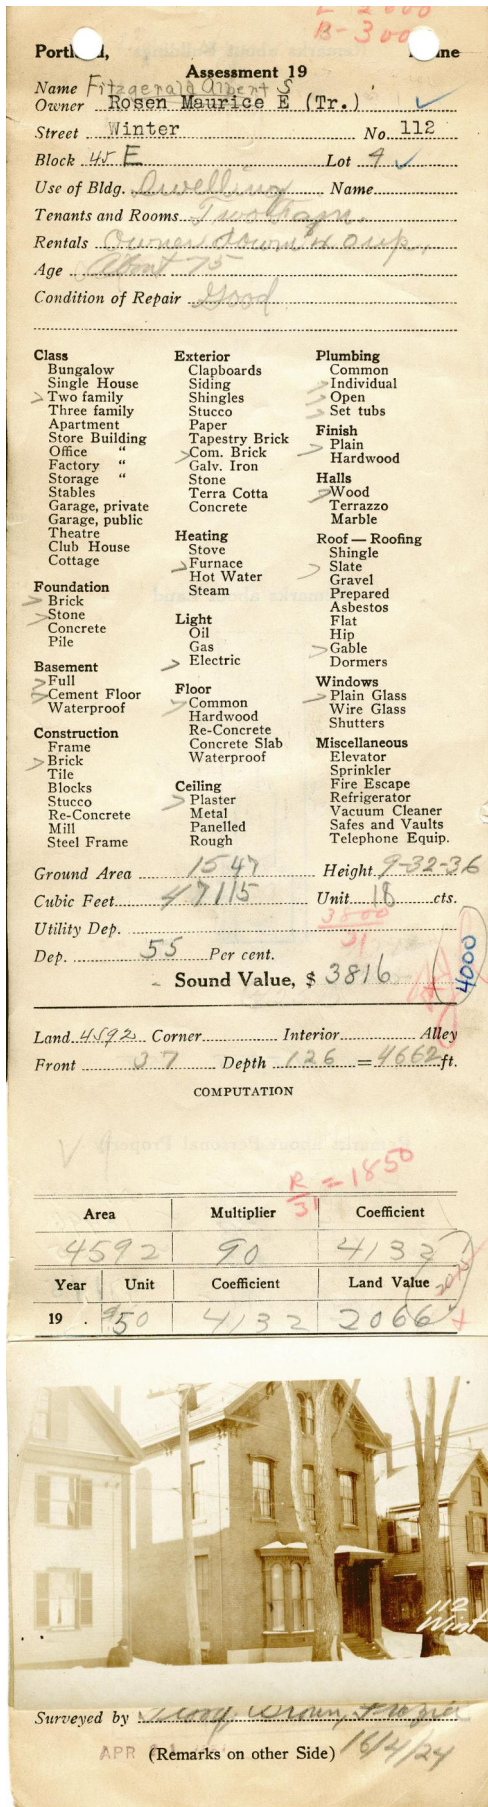 B-300
Portland, Maine
Assessment 19
Name Fitzgerald Albert S
Owner Rosen Maurice E (Tr.)
Street Winter No. 112
Block 45 E Lot 4
Use of Bldg. Dwelling Name
Tenants and Rooms Two Fam.
Rentals Owner down & occup.
Age About 75
Condition of Repair Good
Class
Bungalow
Single House
Two family
Three family
Apartment
Store Building
Office "
Factory "
Storage "
Stables
Garage, private
Garage, public
Theatre
Club House
Cottage
Foundation
Brick
Stone
Concrete
Pile
Basement
Full
Cement Floor
Waterproof
Construction
Frame
Brick
Tile
Blocks
Stucco
Re-Concrete
Mill
Steel Frame
Exterior
Clapboards
Siding
Shingles
Stucco
Paper
Tapestry Brick
Com. Brick
Galv. Iron
Stone
Terra Cotta
Concrete
Heating
Stove
Furnace
Hot Water
Steam
Light
Oil
Gas
Electric
Floor
Common
Hardwood
Re-Concrete
Concrete Slab
Waterproof
Ceiling
Plaster
Metal
Panelled
Rough
Plumbing
Common
Individual
Open
Set tubs
Finish
Plain
Hardwood
Halls
Wood
Terrazzo
Marble
Roof — Roofing
Shingle
Slate
Gravel
Prepared
Asbestos
Flat
Hip
Gable
Dormers
Windows
Plain Glass
Wire Glass
Shutters
Miscellaneous
Elevator
Sprinkler
Fire Escape
Refrigerator
Vacuum Cleaner
Safes and Vaults
Telephone Equip.
Ground Area 1547 Height 9-32-36
Cubic Feet 47115 Unit 18 cts.
Utility Dep. 3800
31
Dep. 55 Per cent.
Sound Value, $ 3816
4000
Land 4592 Corner Interior Alley
Front 37 Depth 126 = 4662 ft.
COMPUTATION
R/31 = 1850
Area Multiplier Coefficient
4592 90 4133
Year Unit Coefficient Land Value
19 . 50 4132 2066
112
Wint
Surveyed by Brown, Frazier
APR
(Remarks on other Side) 16/4/24